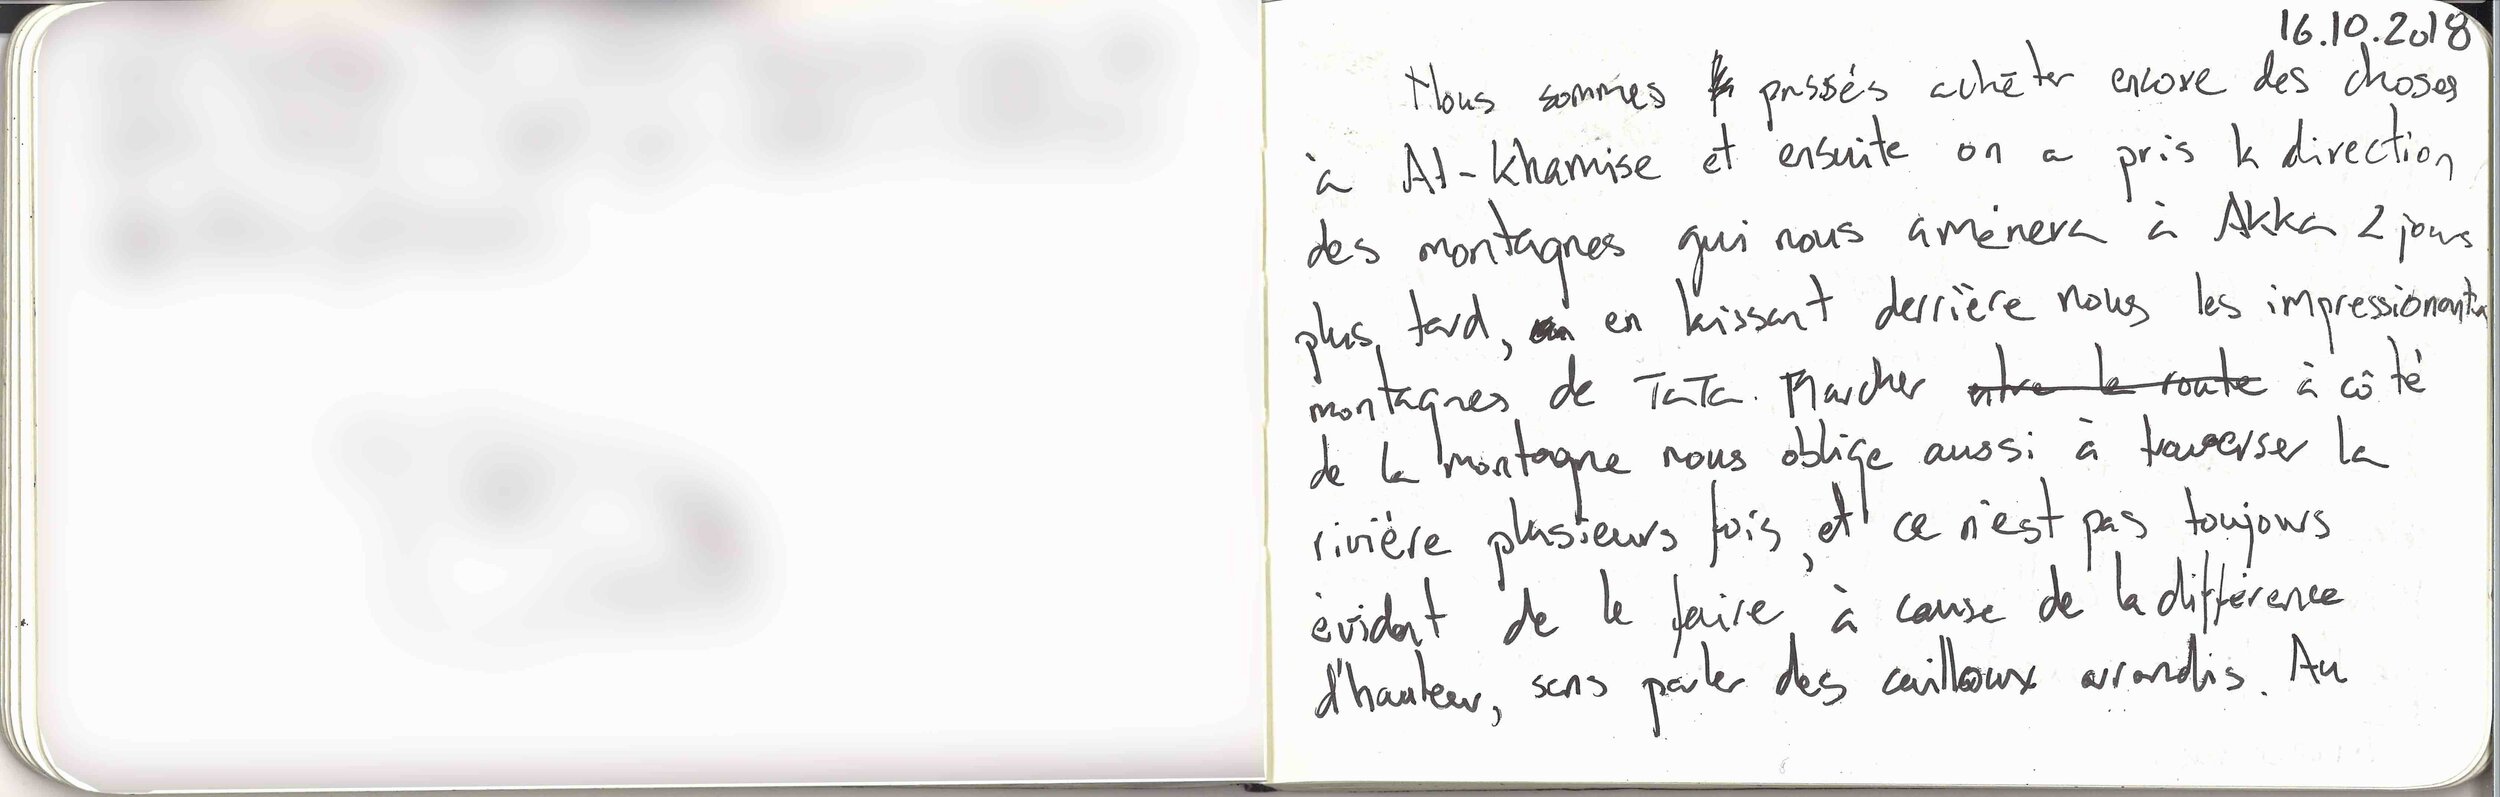 16.10.2018
Nous sommes passés acheter encore des choses
à At-Khamise et ensuite on a pris la direction
des montagnes qui nous amènera à Akka 2 jours
plus tard, en laissant derrière nous les impressionants
montagnes de TaTa. Marcher entre la route à côté
de la montagne nous oblige aussi à traverser la
rivière plusieurs fois, et ce n'est pas toujours
évident de le faire à cause de la différence
d'hauteur, sans parler des cailloux arrondis. Au